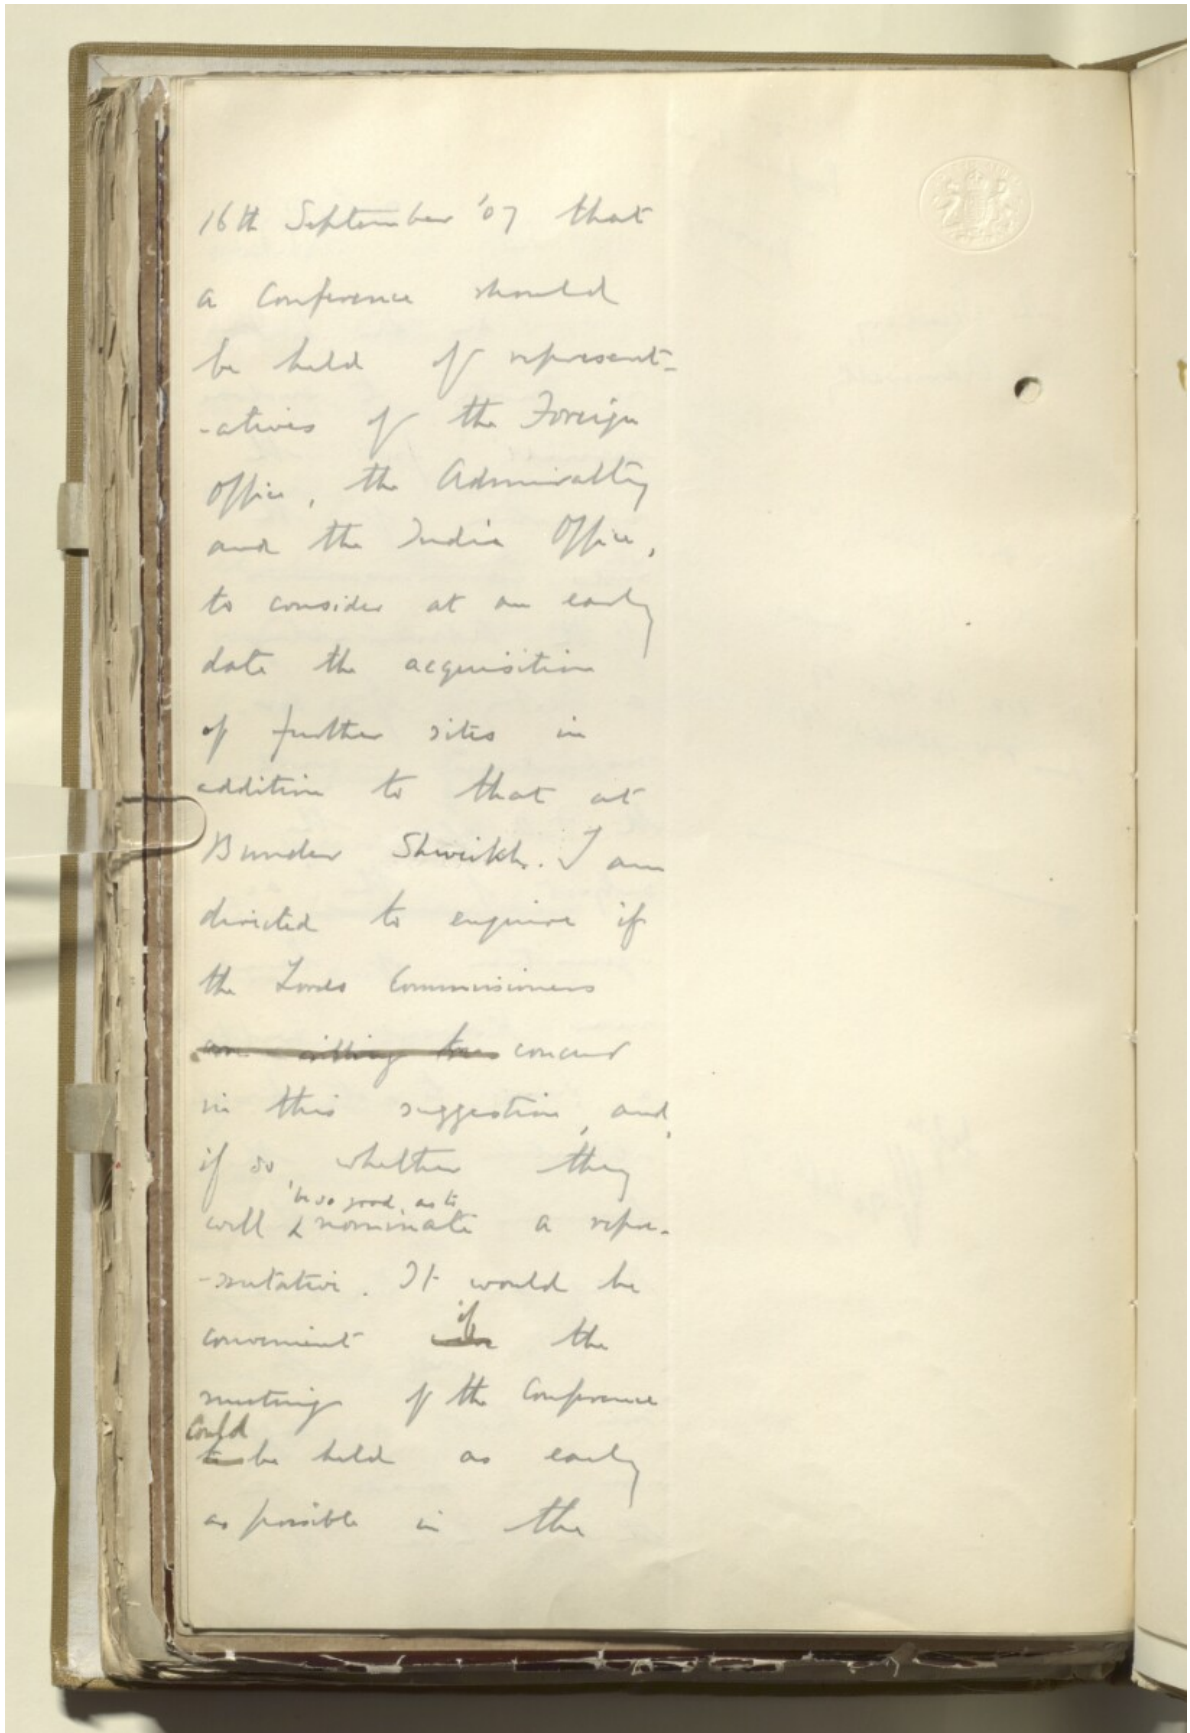 16th September '07 that
a Conference should
be held of represent-
-atives of the Foreign
Office, the Admiralty
and the India Office,
to consider at an early
date the acquisition
of further sites in
addition to that at
Bunder Shweikh. I am
directed to enquire if
the Lords Commissioners
are willing to concur
in this suggestion, and,
if so, whether they
be so good, as to
will nominate a repre-
-sentative. It would be
if
convenient the
meeting of the Conference
could
to be held as early
as possible in the